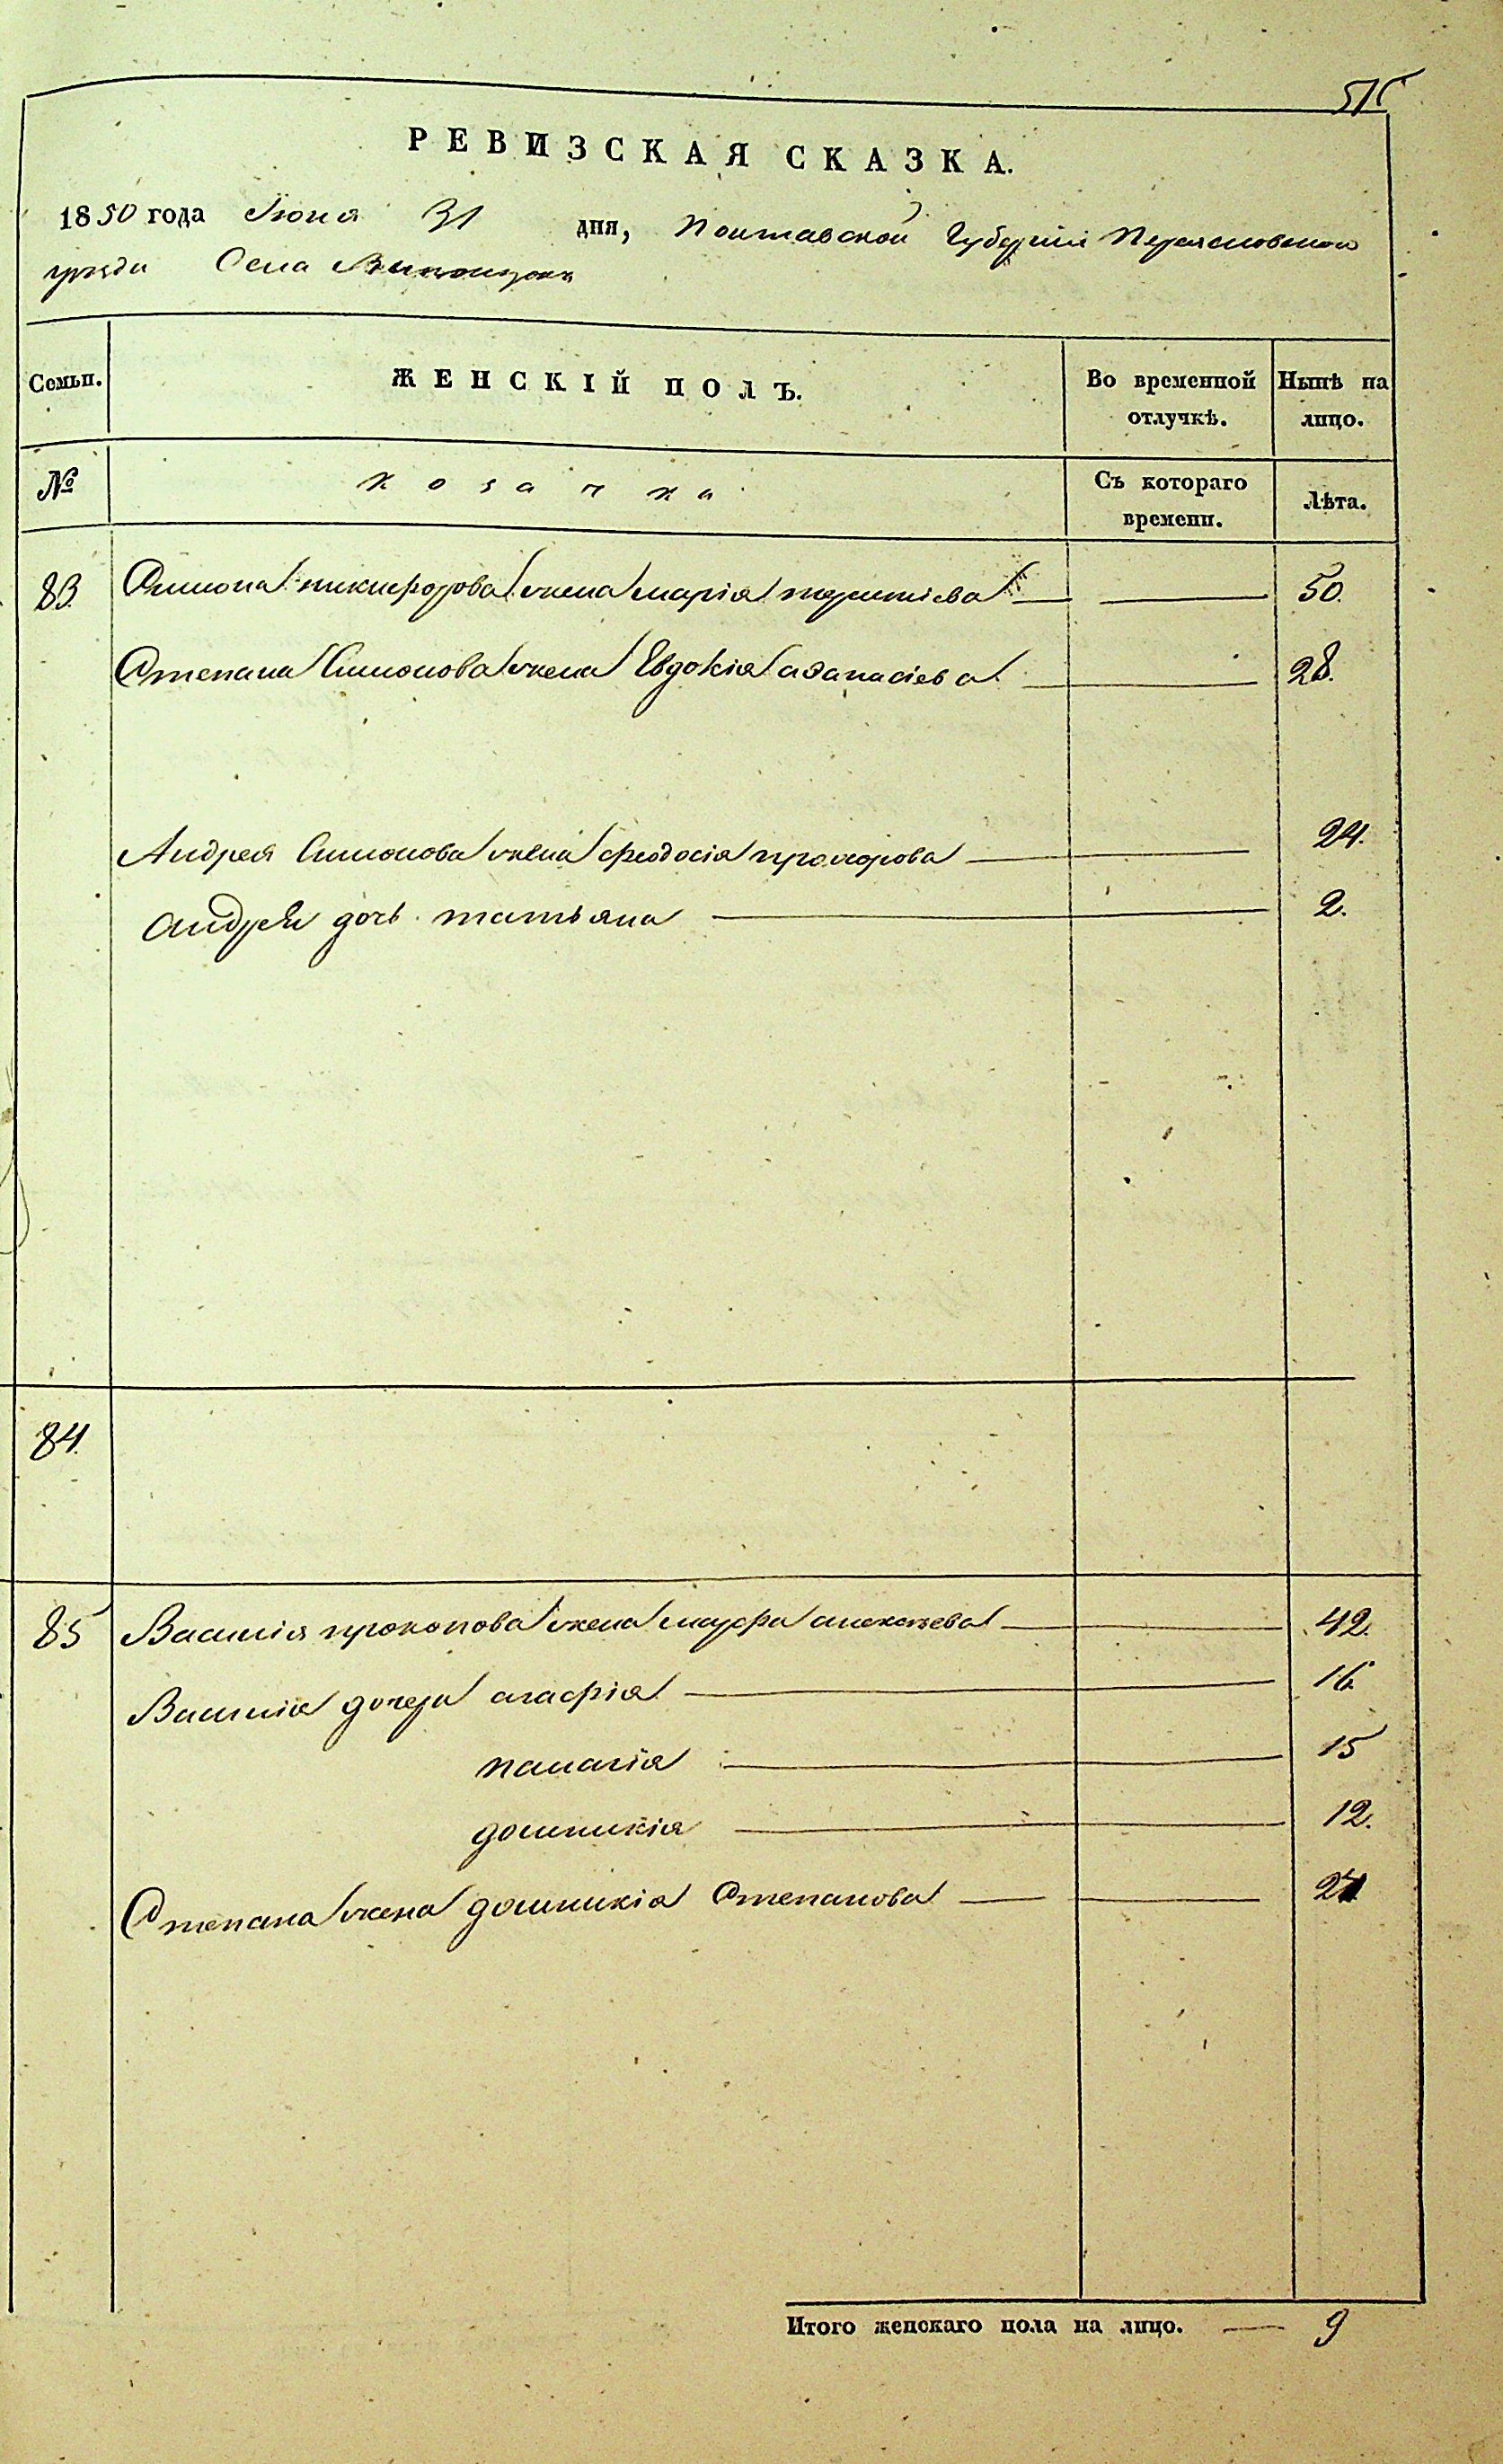 515
РЕВИЗСКАЯ СКАЗКА.
1850 года Июня 31 дня, Полтавской Губернiи Переясловского
уезда Села
Семьи. ЖЕНСКІЙ ПОЛЪ. Во временной отлучкѣ. Нынѣ на лицо.
№ козачка Съ котораго времени. Лѣта.
83. Симона никифорова жена марiя 50.
Степана Симонова жена Евдокiя аѳанасiева 28.
Андрея Симонова жена феодосiя прохорова 24.
Андрея дочь татьяна 2.
84.
85 Василiя прокопова жена марфа алексеева 42.
Василiя дочери агафiя 16
палагiя 15
домникiя 12.
Степана жена домникiя Степанова 21
Итого женскаго пола на лицо. 9